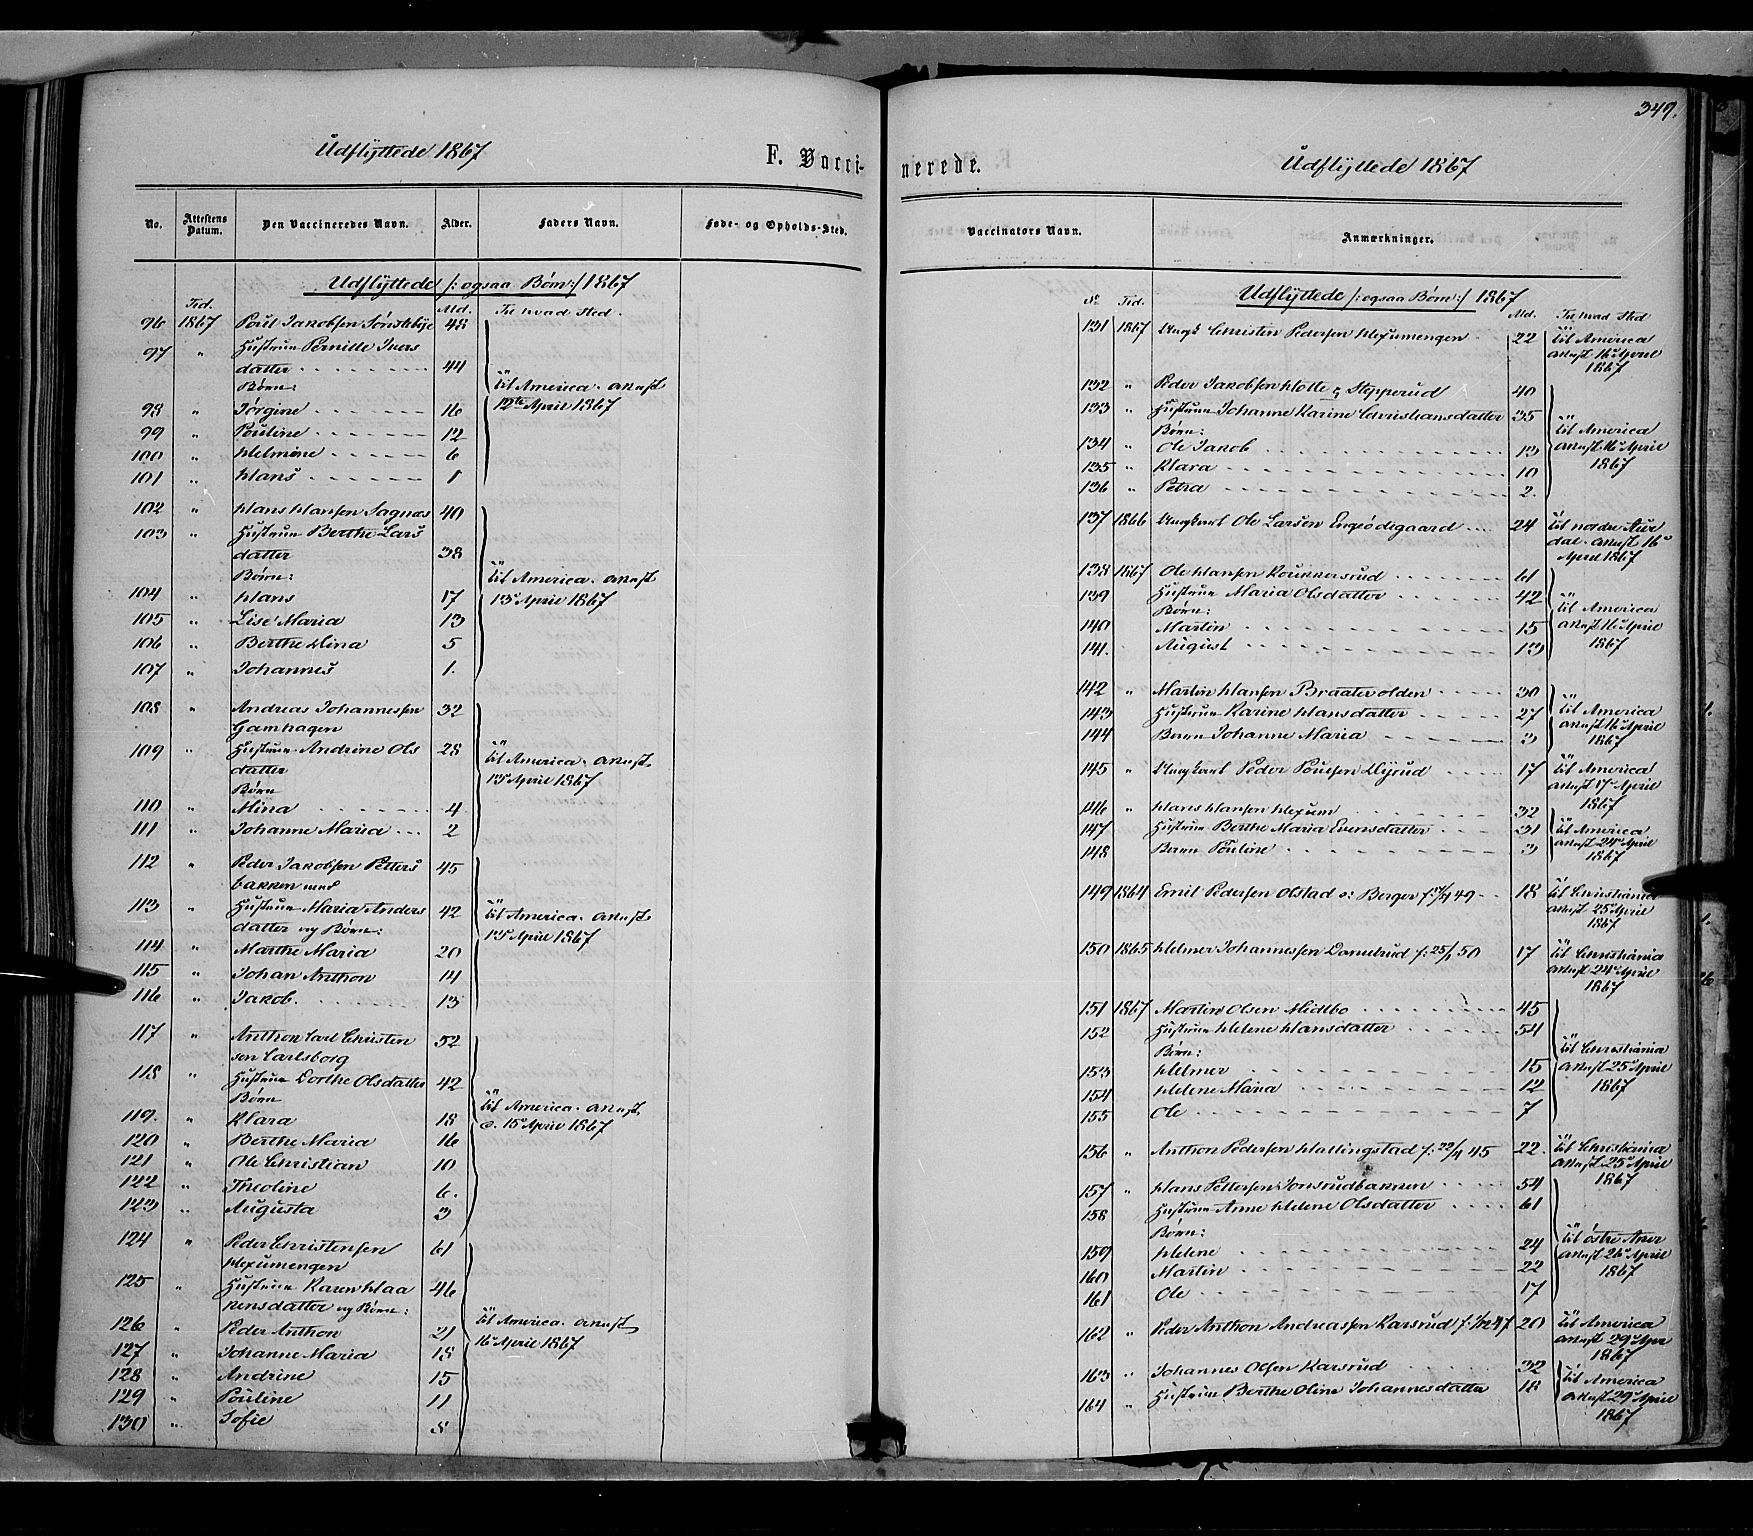 349.
Udflyttede 1867
F. Vacci-
nerede.
Udflyttede 1867
No.
Attestens Datum.
Den Vaccineredes Navn.
Alder.
Faders Navn.
Føde- og Opholds-Sted.
Vaccinators Navn.
Anmærkninger.
Udflyttede /: ogsaa Børn :/ 1867
Tid. Ald. Til hvad Sted.
96 1867 Poul Jakobsen Sønsteby 48
97 " Hustrue Pernille Ivers
datter 44
Børn:
til America. anmst
12te April 1867
98 " Jørgine 16
99 " Pouline 12
100 " Helmine 6
101 " Hans 1
102 " Hans Hansen Sagnæs 40
103 " Hustrue Berthe Lars
datter 38
Børn:
104 " Hans 17
til America. anmst
13de April 1867
105 " Lise Maria 13
106 " Berthe Dina 5
107 " Johannes 1.
108 " Andreas Johannessen 32
Gamhagen
109 " Hustrue Andrine Ols 28
datter
Børn
til America. anmst
13de April 1867
110 " Mina 4
111 " Johanne Maria 2
112 " Peder Jakobsen Petters 45
bakken med
113 " Hustrue Maria Anders 42
datter og Børn:
til America. anmst
13de April 1867
114 " Marthe Maria 20
115 " Johan Anthon 14
116 " Jakob. 13
117 " Anthon Carl Christen 52
sen Carlsborg
118 " Hustrue Dorthe Olsdatter 42
Børn
119. " Klara 18
til America. anmst
d. 15de April 1867
120 " Berthe Maria 16
121 " Ole Christian 10
122 " Theoline 6.
123 " Augusta 3
124 " Peder Christensen 61
Hexumengen
125 " Hustrue Karen Haa 46
kensdatter og Børn:
126 " Peder Anthon 21
til America. anmst
16de April 1867
127 " Johanne Maria 18
128 " Andrine 15
129 " Pouline 11
130 " Sofie 8
Udflyttede /: ogsaa Børn :/ 1867
No Tid. Ald. Til hvad Sted
131 1867 Ungk Christen Pedersen Hexumengen 22 til America
anmst 16de April
1867
132 " Peder Jakobsen Hotte Stepperud 40
133 " Hustrue Johanne Karine Christiansdatter 35
Børn:
134 " Ole Jakob 13
til America
anmst 16de April
1867
135 " Klara 10
136 " Petra 2.
137 1866 Ungkarl Ole Larsen Engeødegaard 24 til nordre Aur
dal. anmst 16de
April 1867
138 1867 Ole Hansen Koukkersrud 61
139 Hustrue Maria Olsdatter 42
Børn:
til America
anmst 16de April
1867
140 Martin 15
141. August 13
142 " Martin Hansen Braaterolden 30
143 Hustrue Karine Hansdatter 27
144 Barn Johanne Maria 3
til America
anmst 16de April
1867
145 " Ungkarl Peder Poulsen Dyrud 17 til America
anmst 17de April
1867
146 " Hans Hansen Hexum 32
147 Hustrue Berthe Maria Evensdatter 31
148 Barn Pouline 3
til America
anmst 24de April
1867
149 1864 Emil Pedersen Olstad o: Berger 18 til Christiania
anmst 25de April
1867
150 1865 Helmer Johannessen Damebrud f: 25/1 50 17 til Christiania
anmst 24de April
1867
151 1867 Martin Olsen Midtbo 45
152 Hustrue Helene Hansdatter 54
Børn:
153 Helmer 15
til Christiania
anmst 25de April
1867
154 Helene Maria 12
155 Ole 7
156 " Anthon Pedersen Hallingstad f: 22/4 45 22. til Christiania
anmst 25de April
1867
157 " Hans Pettersen Jonsrudbakken 54
158 Hustrue Anne Helene Olsdatter 61
Børn:
159 Helene 24
til østre Aker
anmst 26de April
1867
160 Martin 22
161 Ole 17
162 " Peder Anthon Andreassen Karsrud f. 1/12 47 20 til America
anmst 29de Apr
1867
163 " Johannes Olsen Karsrud 32
164 " Hustrue Berthe Oline Johannesdatter 18
til America
anmst 29de April
1867